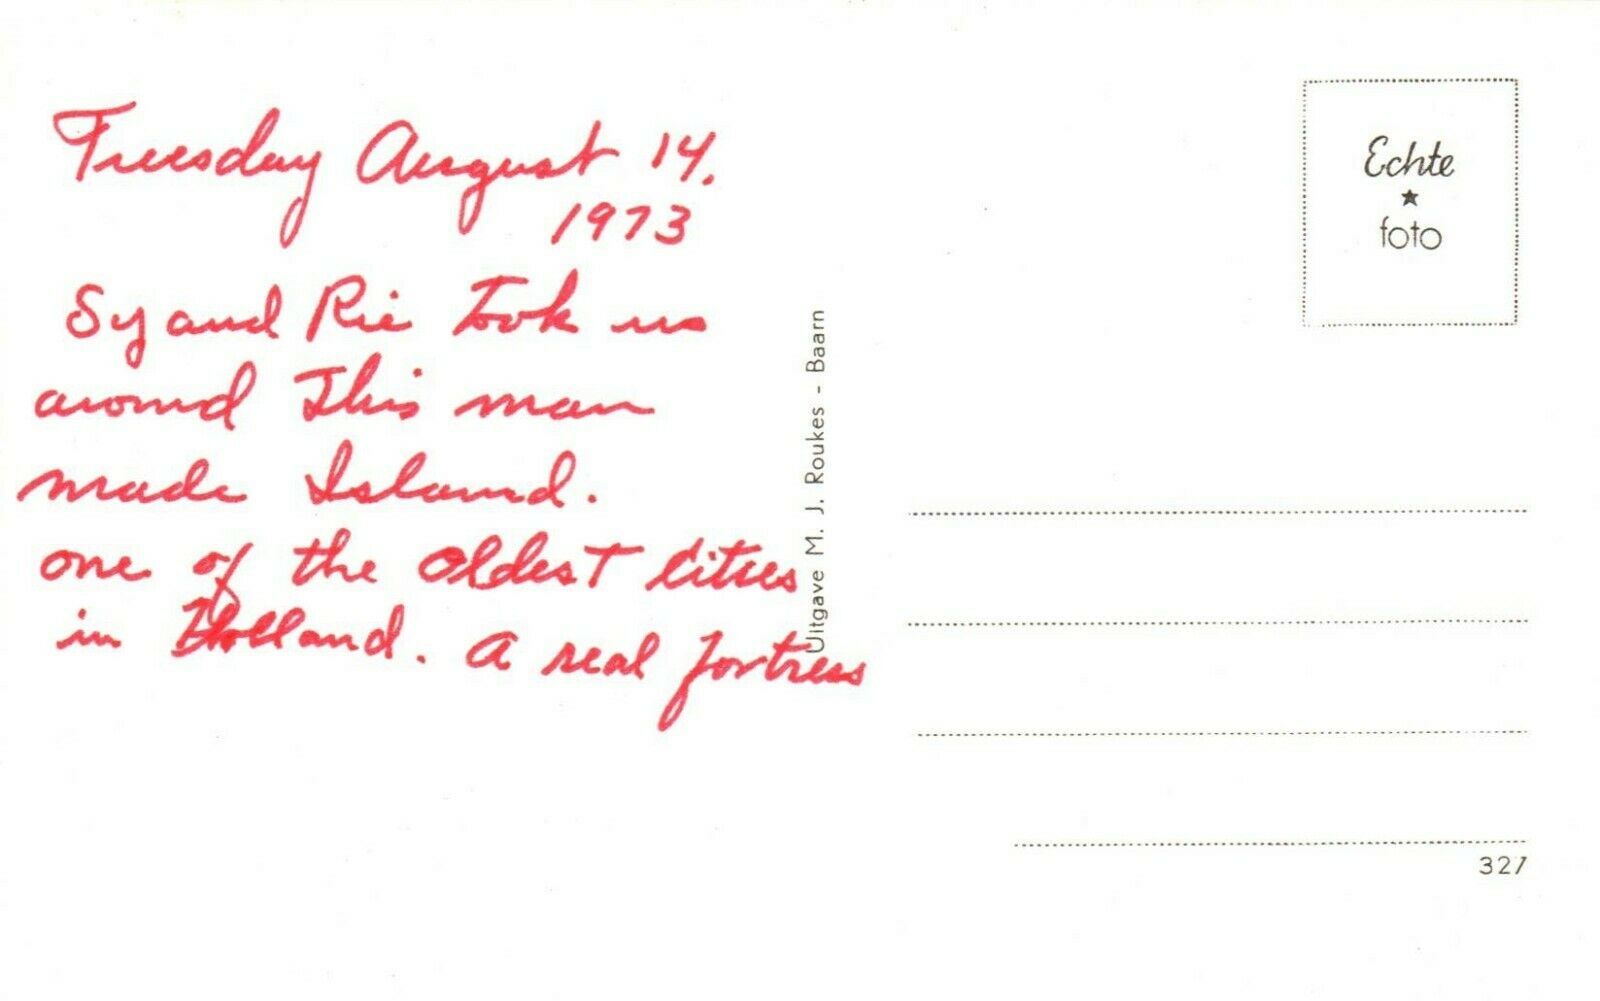 Tuesday August 14.
1973
Sy and Rie Took us
around This man
made Island.
one of the oldest Cities
in Holland. A real fortress
Uitgave M. J. Roukes - Baarn
Echte
foto
327